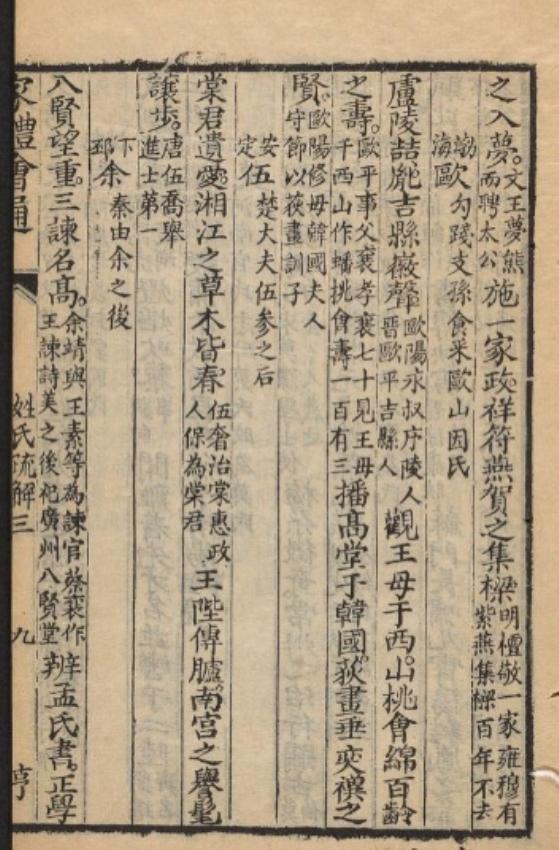 之入夢。文王夢熊而聘太公施一家政祥符燕賀之集樑梁明檀敬一家雍穆有紫燕集樑百年不去
渤海歐勾踐支孫食采歐山因氏
盧陵喆胤吉縣徽聲歐陽永叔序陵人晋歐平吉縣人觀王母于西。山桃會綿百齡
之壽。歐平事父衰孝衰七十見王母千西山作蟠挑會壽一百有三播高堂于韓國。荻畫垂奕禩之
賢。歐陽修母韓國夫人守節以荻畫訓子
安定伍楚大夫伍参之后
棠君遺愛湘江之草木皆春伍奢治棠惠政人保為棠君王陛傳臚。南宫之譽髦
讓步。唐伍喬舉進士第一
下邳余秦由余之後
八賢望重。三諫名高。余靖與王素等為諫官蔡襄作王諫詩美之後祀廣州八賢堂辨孟氏書。正學
家禮會通 姓氏疏解三 九 亨